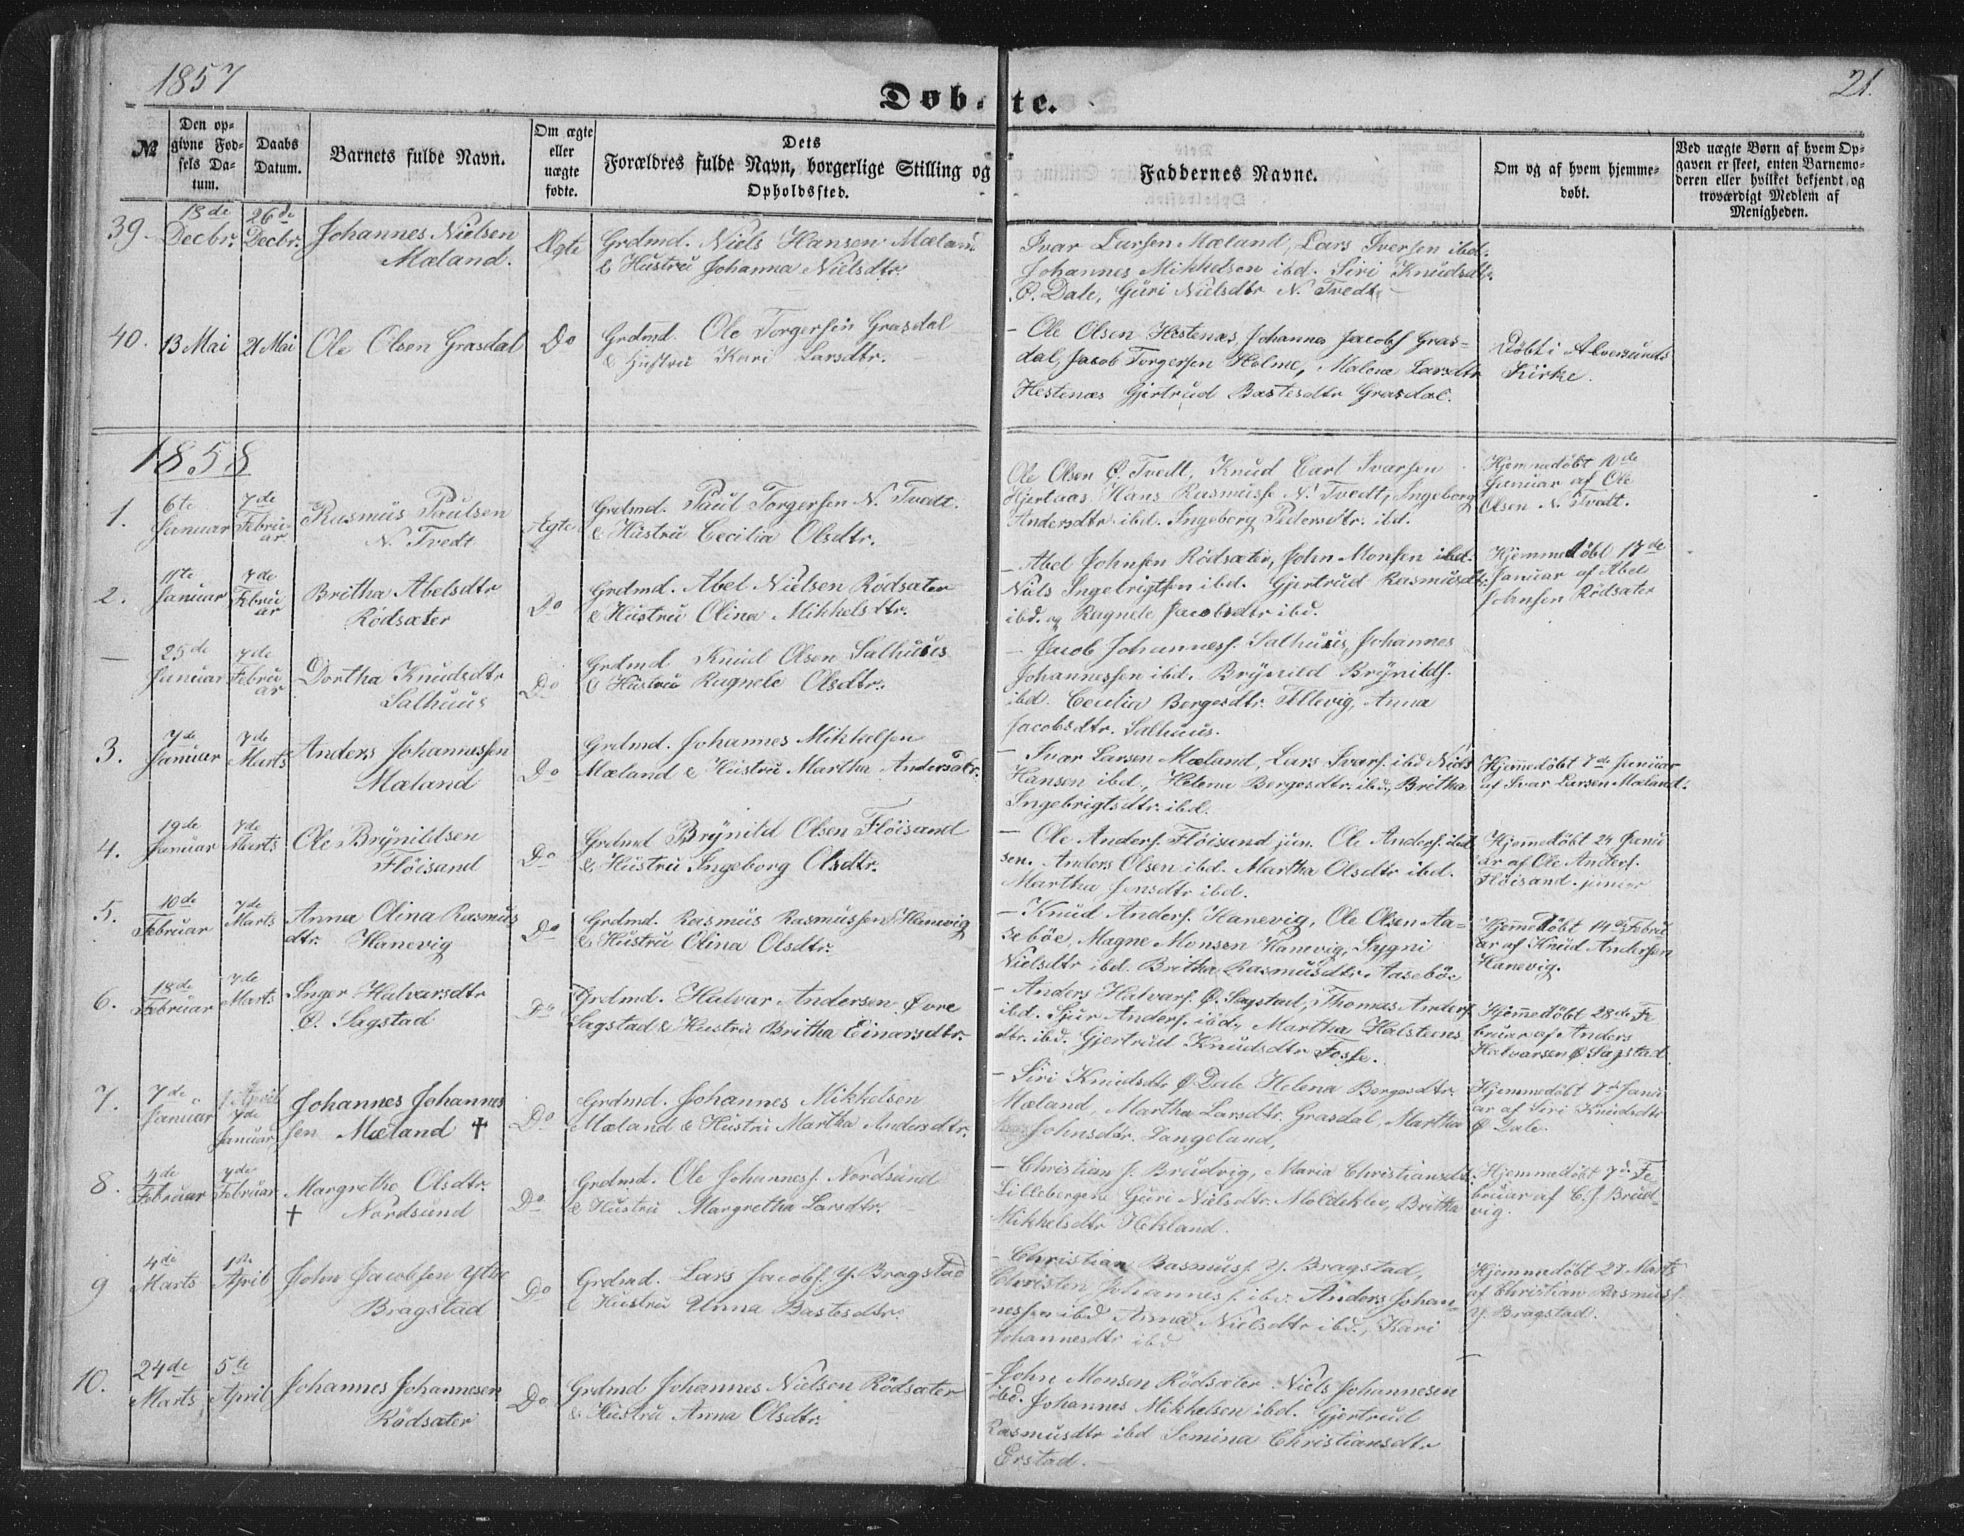 1857
21.
Døbte.
№
Den opgivne Fødsels Datum.
Daabs Datum.
Barnets fulde Navn.
Om ægte eller uægte fødte.
Dets Forældres fulde Navn, borgerlige Stilling og Opholdssted.
Faddernes Navne.
Om og af hvem hjemmedøbt.
Ved uægte Børn af hvem Opgaven er skeet, enten Barnemoderen eller hvilket bekjendt og troværdigt Medlem af Menigheden.
39.
18de Decbr.
26de Decbr.
Johannes Nielsen
Mæland.
Ægte
Grdmd. Niels Hansen Mæland
& Hustru Johanna Nielsdtr.
Ivar Larsen Mæland, Lars Iversen ibd.
Johannes Mikkelsen ibd. Siri Knudsdtr
Ø. Dale, Guri Nielsdtr N. Tvedt,
40.
13 Mai
21 Mai
Ole Olsen Grasdal
Do
Grdmd. Ole Torgersen Grasdal
& Hustru Kari Larsdtr.
- Ole Olsen Hestenæs, Johannes Jacobs Gras-
dal, Jacob Torgersen Holme, Malene Larsdtr
Hestenæs Gjertrud Bastesdtr Grasdal.
Døbt i Alversunds
Kirke.
1858
1.
6te Januar
7de Februar
Rasmus Paulsen
N. Tvedt
Ægte
Grdmd. Paul Torgersen N. Tvedt.
& Hustru Cecilia Olsdtr.
Ole Olsen Ø. Tvedt, Knud Carl Ivarsen
Hjertaas, Hans Rasmuss. N. Tvedt, Ingeborg
Andersdtr ibd. Ingeborg Pedersdtr. ibd.
Hjemmedøbt
Januar af Ole
Olsen N. Tvedt.
2.
11te Januar
7de Februar
Britha Abelsdtr
Rödsæter
Do
Grdmd. Abel Nielsen Rödsæter
& Hustru Olina Mikkelsdtr.
- Abel Johnsen Rödsæter, John Monsen ibd.
Niels Ingebrigtsen ibd. Gjertrud Rasmusdtr.
ibd. og Ragnele Jacobsdtr ibd.
Hjemmedöbt 17de
Januar af Abel
Johnsen Rödsæter
—
25de Januar
7de Februar
Dortha Knudsdtr
Salhuus
Do
Grdmd. Knud Olsen Salhuus
& Hustru Ragnele Olsdtr.
- Jacob Johanness. Salhuus, Johannes
Johannessen ibd. Brÿnild Brÿnilds.
ibd. Cecilia Bergesdtr. Anna
Jacobsdtr. Salhuus.
3.
7de Januar
7de Marts
Anders Johannessen
Mæland
Do
Grdmd. Johannes Mikkelsen
Mæland & Hustru Martha Andersdtr.
- Ivar Larsen Mæland, Lars Ivars. ibd Niels
Hansen ibd, Helena Bergesdtr. ibd., Britha
Ingebrigtsdtr. ibd.
Hjemmedöbt 7de Januar
af Ivar Larsen Mæland.
4.
19de Januar
7de Marts
Ole Brÿnildsen
Flöisand
Do
Grdmd Brÿnild Olsen Flöisand
& Hustru Ingeborg Olsdtr.
- Ole Anders. Flöisand jun. Ole Anders. ibd
sen. Anders Olsen ibd. Martha Olsdtr ibd.
Martha Jensdtr ibd.
Hjemmedöbt 24 Janu
ar af Ole Anders.
Flöisand. junior
5.
10de Februar
7de Marts
Anna Olina Rasmus
dtr. Hanevig
Do
Grdmd. Rasmus Rasmussen Hanevig
& Hustru Olina Olsdtr.
- Knud Anders. Hanevig, Ole Olsen Aa-
seböe, Magne Monsen Hanevig, Sygni
Nielsdtr ibd. Britha Rasmusdtr. Aaseböe
Hjemmedöbt 14de Febru
ar af Knud Andersen
Hanevig.
6.
18de Februar
7de Marts
Inger Halvarsdtr
Ø. Sagstad
Do
Grdmd. Halvar Andersen Øvre
Sagstad & Hustru Britha Einarsdtr.
- Anders Halvars. Ø. Sagstad, Thomas Anders.
ibd. Sjur Anders. ibd, Martha Halsteens
dtr. ibd. Gjertrud Knudsdtr Fosse.
Hjemmedöbt 28de Fe
bruar af Anders
Halvarsen Ø Sagstad
7.
7de Januar
7de Januar
Johannes Johannes
sen Mæland †
Do
Grdmd. Johannes Mikkelsen
Mæland & Hustru Martha Andersdtr.
- Siri Knudsdtr Ø Dale Helena Bergesdtr.
Mæland, Martha Larsdtr. Grasdal, Martha
Johnsdtr. Langeland,
Hjemmedöbt 7de Janu
ar af Siri Knudsdtr
Ø Dale.
8.
4de Februar
7de Februar
Margrethe Olsdtr.
† Nordsund
Do
Grdmd. Ole Johanness. Nordsund
& Hustru Margretha Larsdtr.
- Christian J. Brudvig, Maria Christiansdtr.
Lillebergen Guri Nielsdtr. Moldeklev, Britha
Mikkelsdtr Hekland.
Hjemmedöbt 7de Fe
bruar af C. J. Brud-
vig.
9
4de Marts
1ste April
John Jacobsen Ytre
Bragstad
Do
Grdmd. Lars Jacobs. Y. Bragstad
& Hustru Anna Bastesdtr.
- Christian Rasmuss. Y. Bragstad,
Christen Johanness. ibd. Anders Johan-
nessen ibd Anna Nielsdtr ibd., Kari
Johannesdtr ibd
Hjemmedöbt 27 Marts
af Christian Rasmuss.
Y. Bragstad.
10.
24de Marts
5te April
Johannes Johannesen
Rödsæter
Do
Grdmd Johannes Nielsen Rödsæter
& Hustru Anna Olsdtr.
- John Monsen Rödsæter Niels Johannesen
ibd. Johannes Mikkelsen ibd. Gjertrud
Rasmusdtr ibd Semina Christiansdtr
Erstad.